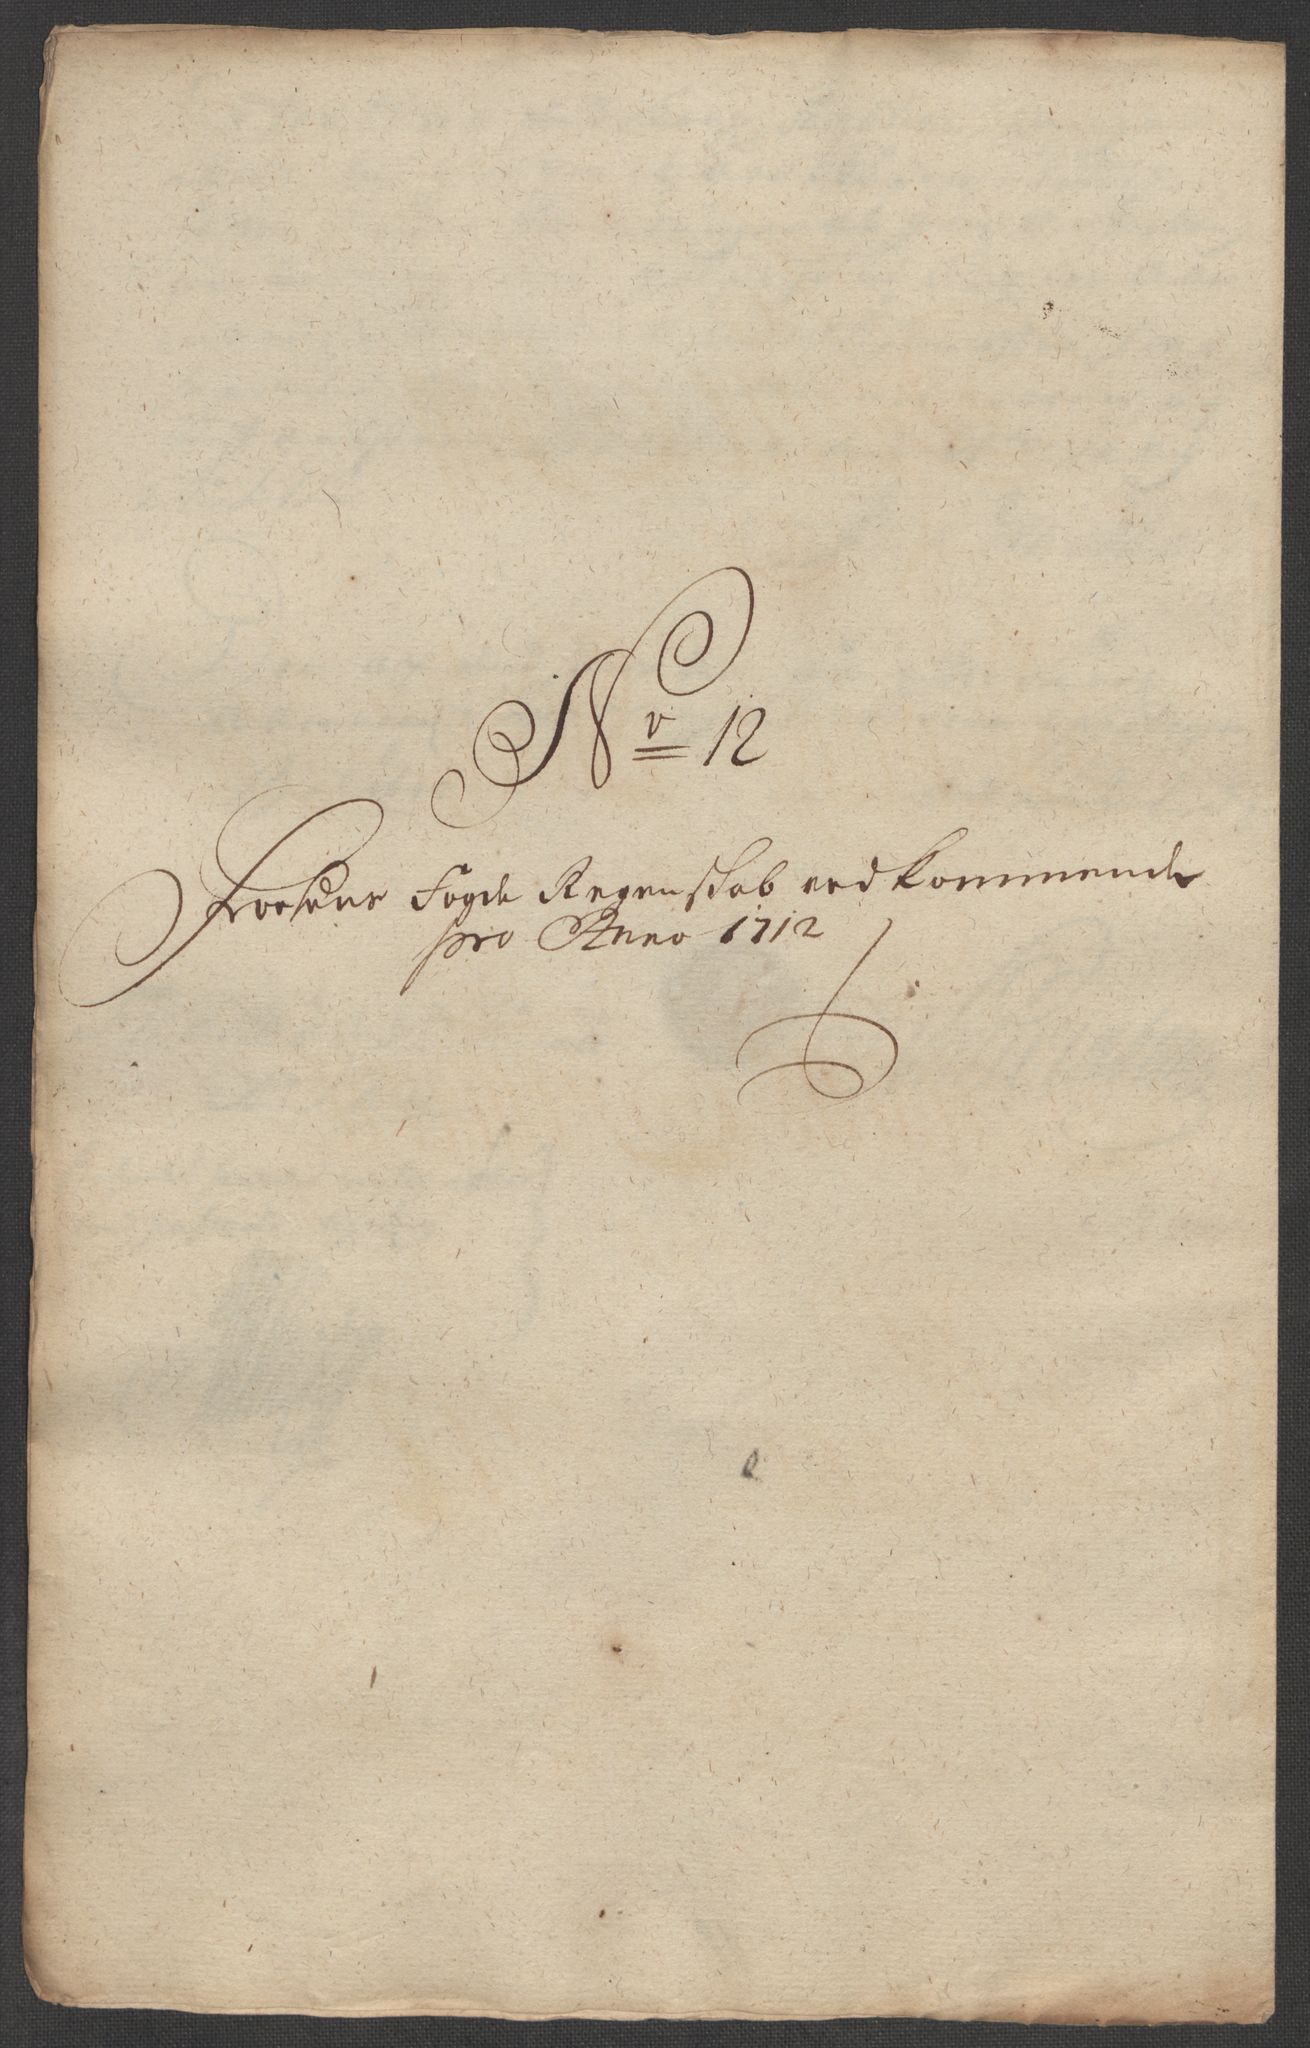 No 12
Foesens Fogde Regenskab vedkommende
pro Anno 1712